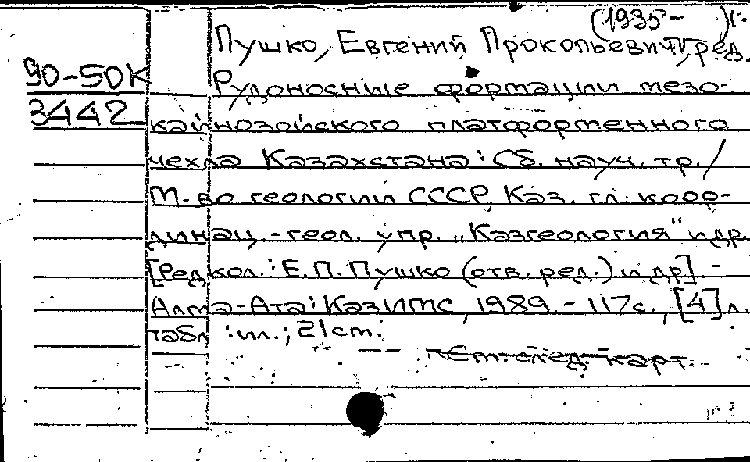 (1935- )
Пушко, Евгений Прокопьевич, ред.
90-50К
Рудоносные формации мезо-
3442
кайнозойского платформенного
чехла Казахстана: Сб. науч. тр./
М-во геологии СССР, Каз. гл. коор-
динац.-геол. упр. „Казгеология" и др.
[Редкол.: Е.П. Пушко (отв. ред.) и др]. -
Алма-Ата: КазИМС, 1989. - 117с., [4] л.
табл.: ил.; 21cm.
См. след. карт.